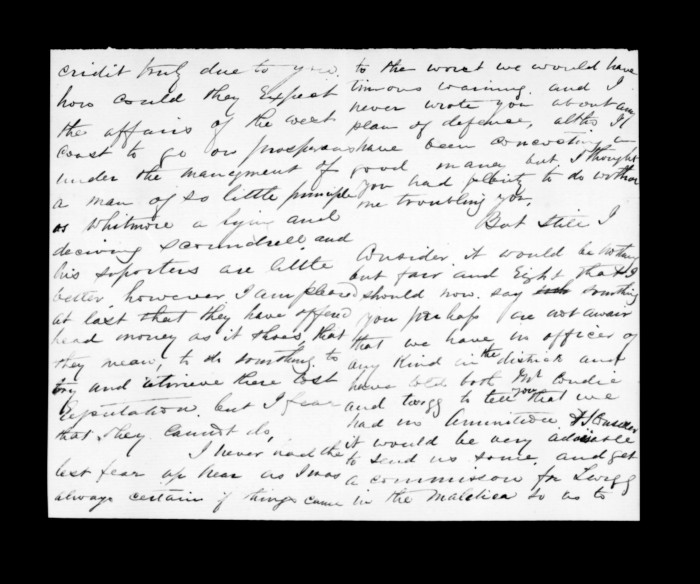 credit truly due to you.
how could they Expect
the affairs of the west
coast to go on prosperous
under the mangment of
a man of so little principle
as Whitmore a lying and
deciving scoundrell and
his soporters are little
better. however I am pleased
at last that they have offerd
head money as it shoes, that
they mean, to do something to
try and retrieve there lost
reputation. but I fear
that they cannot do,
I never had the
last fear up hear as I was
always certain if things came
to the worst we would have
timous warning. and I
never wrote you about any
plan of defence, altho I
have been concocting a
good maney but I thought
you had plenty to do without
me troubling you,
But still I
Consider it would be nothing
but fair and Right that I
should now. say something
you perhaps are not awair
that we have no officer of
any Kind in the district and
have told both Mr Condie
and twogg to tell you that we
had no Aminition,
it would be very advisable
to send us some. and get
a commisson for Twigg
in the Malchea so as to